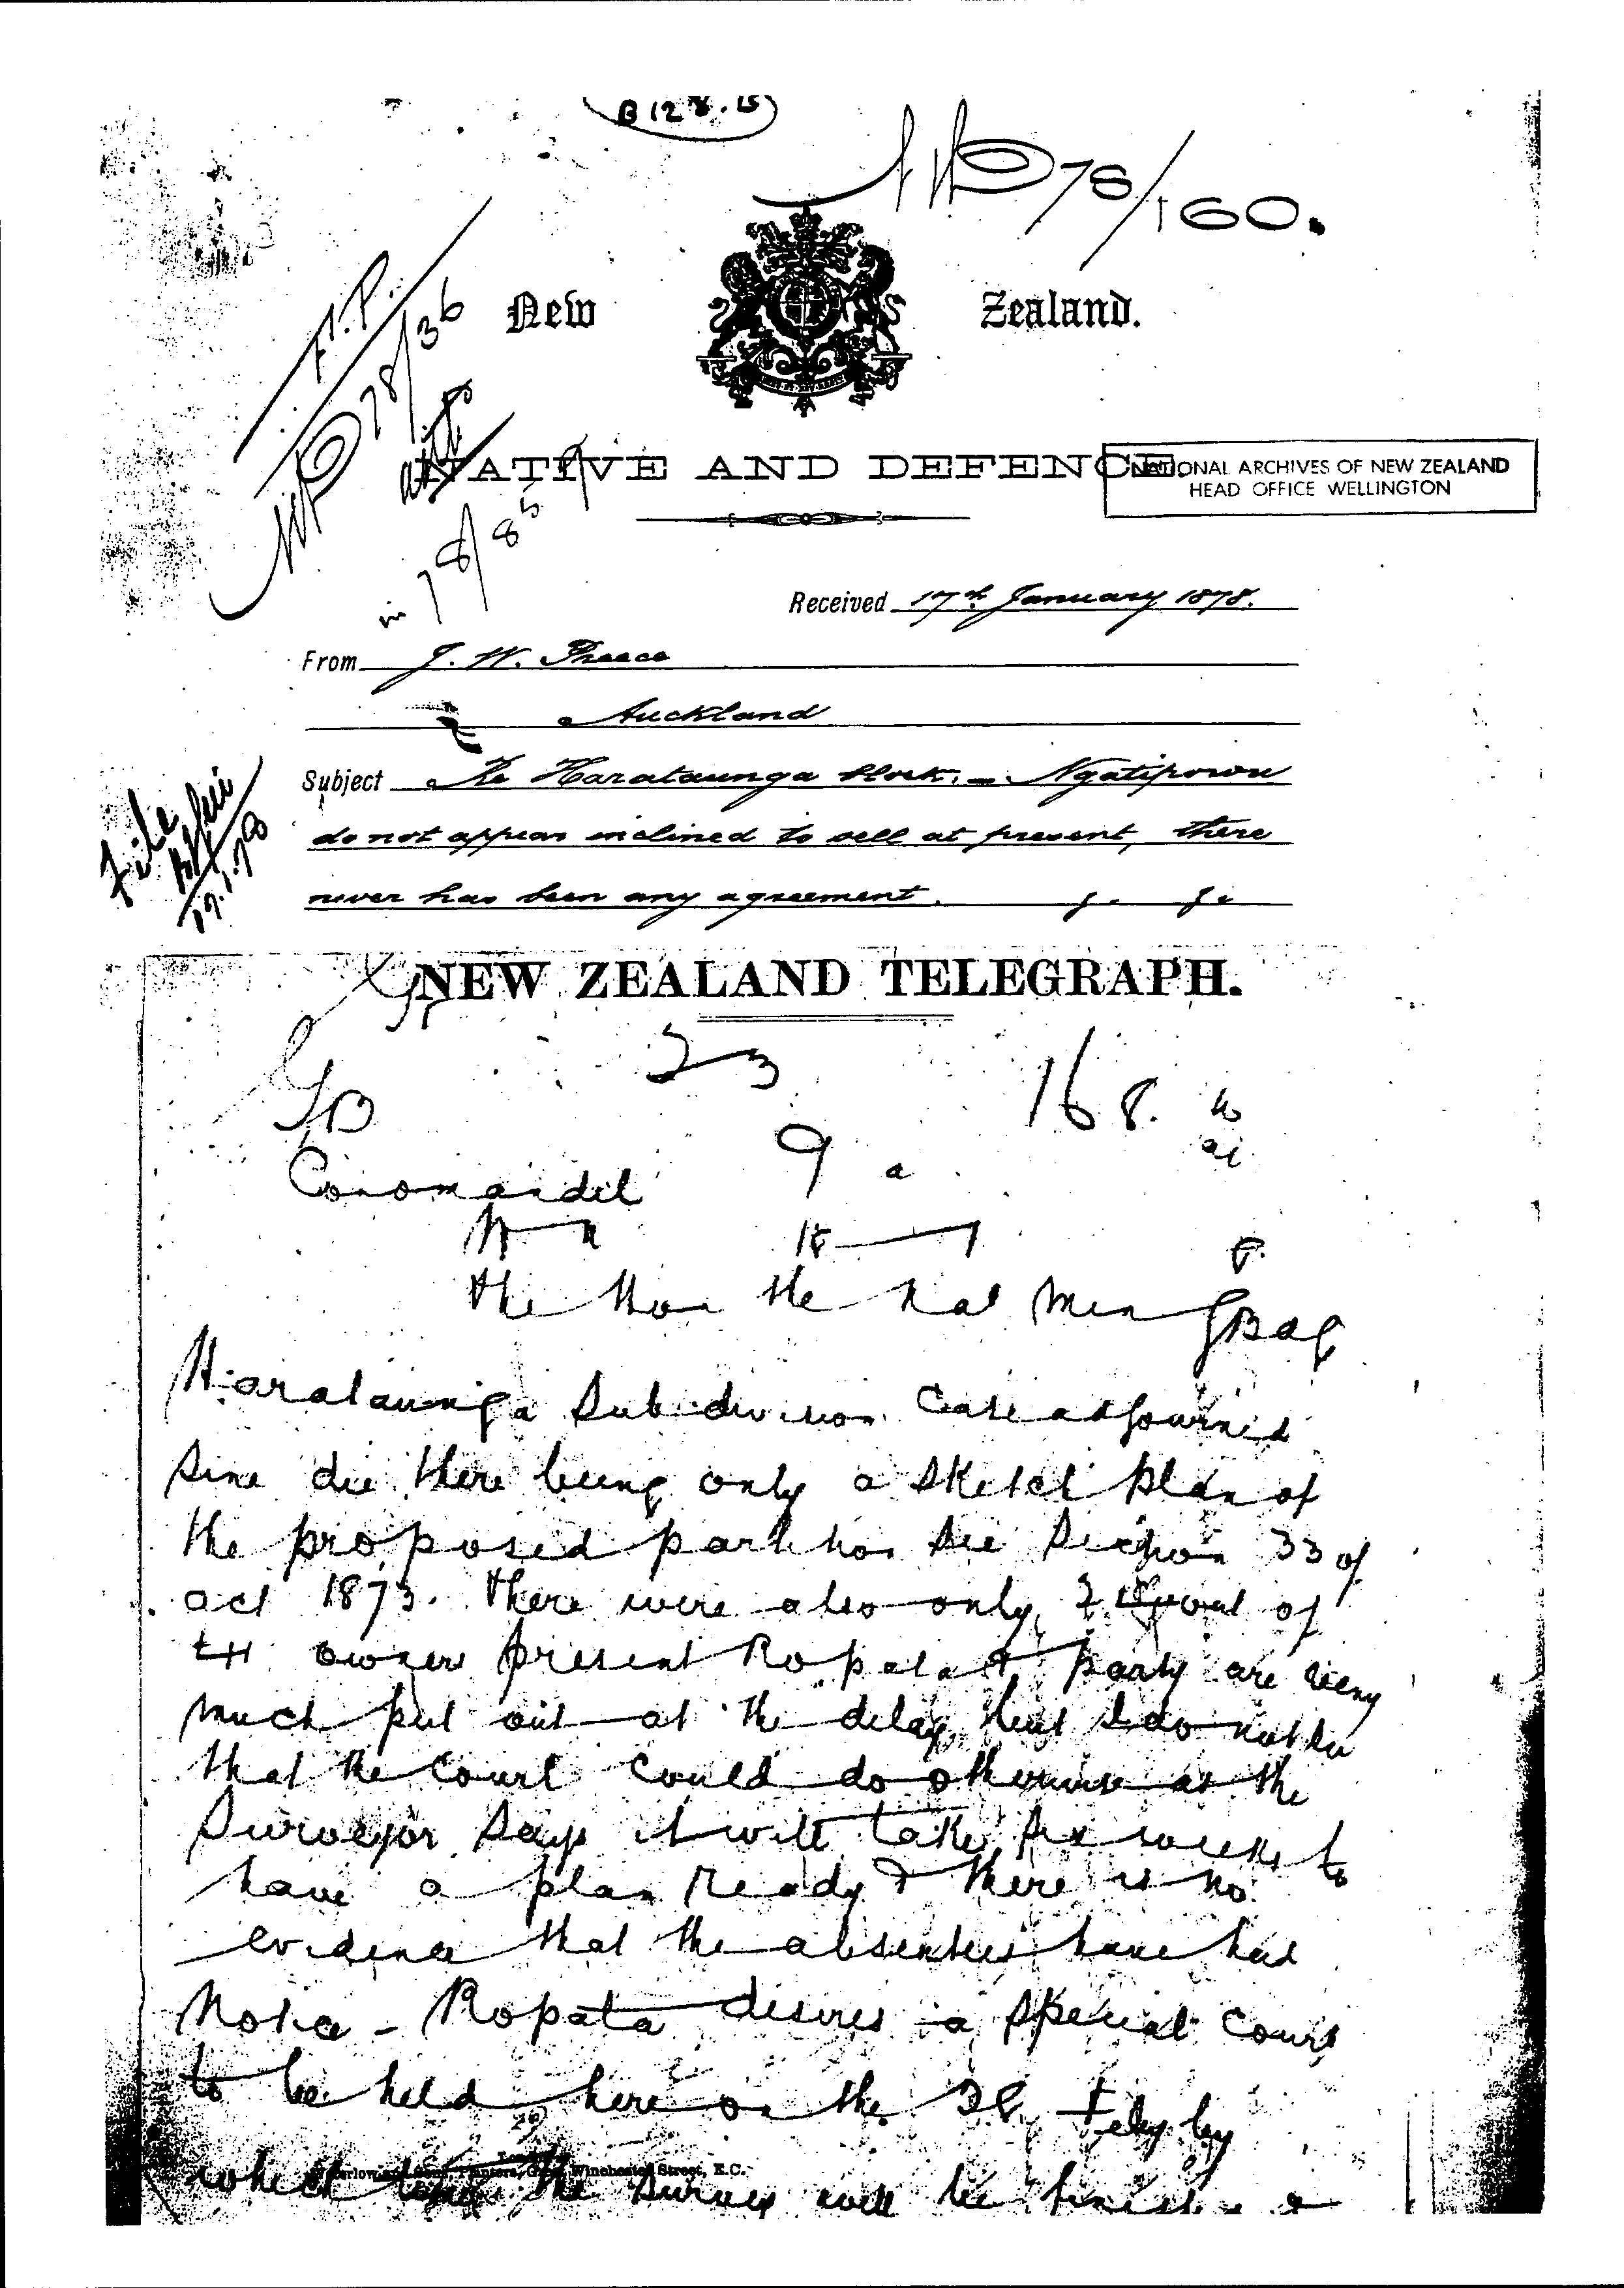 B 128.15
NLP 78/160.
N.P.
NLP 78/36
in 78/85
New Zealand.
NATIVE AND DEFENCE
NATIONAL ARCHIVES OF NEW ZEALAND
HEAD OFFICE WELLINGTON
Received 17th January 1878.
From J. W. Preece
Auckland
Subject Re Harataunga block. – Ngatiporou
do not appear inclined to sell at present, there
never has been any agreement.
File
19.1.78
NEW ZEALAND TELEGRAPH.
23
168.
Coromandel
9 a
The Hon the Nat Min
Harataunga Subdivision Case adjourned
sine die there being only a sketch plan of
the proposed partition see Section 33 of
act 1873. There were also only 2 out of
owners present Ropata & party are very
much put out at the delay but I do not see
that the Court could do otherwise as the
Surveyor says it will take six weeks to
have a plan ready & there is no
evidence that the absentees have had
Notice – Ropata desires a special Court
to be held here on the 28 Feby by
which time the survey will be finished &
Printers, Winchester Street, E.C.